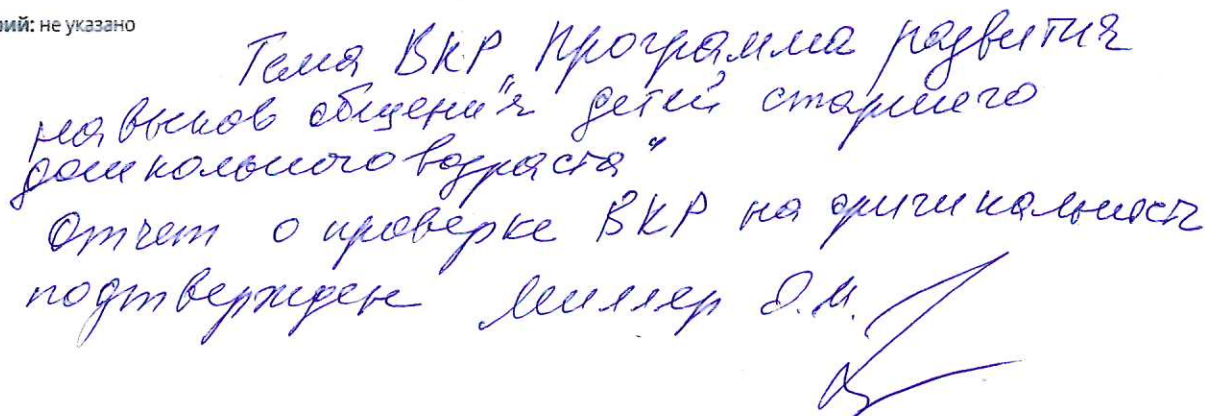 рий: не указано
Тема ВКР „Программа развития
навыков общения детей старшего
дошкольного возраста“
Отчет о проверке ВКР на оригинальность
подтвержден Миллер О.М.